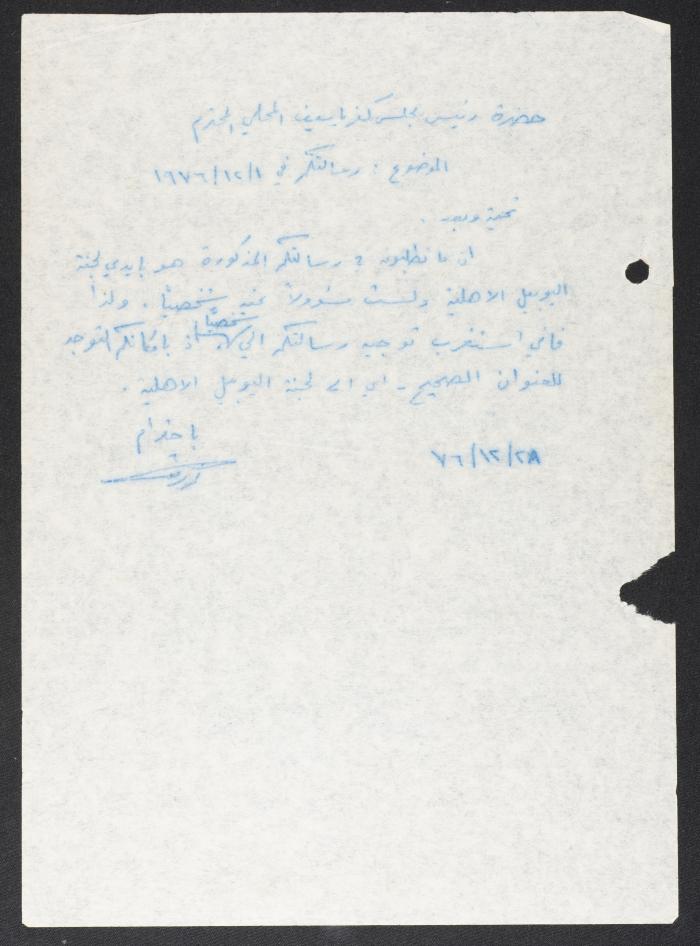 حضرة رئيس مجلس كفرياسيف المحلي المحترم
الموضوع : رسالتكم في ١٩٧٦/١٢/١
تحية وبعد .
ان ما تطلبونه في رسالتكم المذكورة هو بايدي لجنة
اليوبيل الاهلية ولست مسؤولاً عنه شخصيًا . ولذا
فاني استغرب توجيه رسالتكم الي شخصيًا اذ بامكانكم التوجه
للعنوان الصحيح - اي الى لجنة اليوبيل الاهلية .
باحترام
٧٦/١٢/٢٨